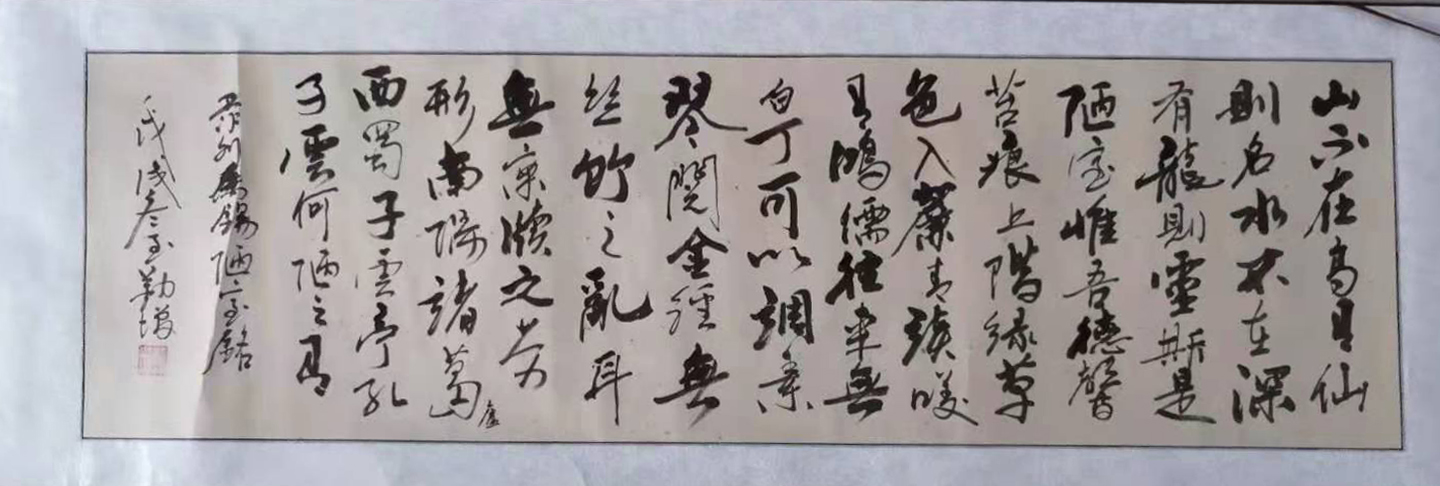 山不在高有仙
則名水不在深
有龍則靈斯是
陋室惟吾德馨
苔痕上階绿草
色入簾青談咲
有鴻儒往来無
白丁可以調素
琴閲金經無
丝竹之亂耳
無案牘之劳
形南陽諸葛廬
西蜀子雲亭孔
子雲何陋之有
刘禹錫陋室銘
戊戌冬至勤